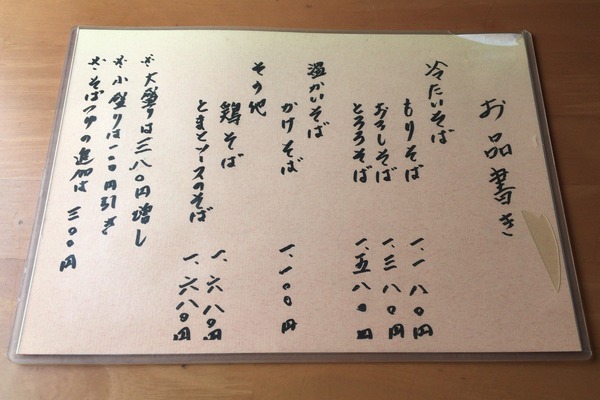 お品書き
冷たいそば
もりそば 一、一八〇円
おろしそば 一、三八〇円
とろろそば 一、五八〇円
温かいそば
かけそば 一、一〇〇円
その他
鶏そば 一、六八〇円
とまとソースのそば 一、六八〇円
※大盛りは三八〇円増し
※小盛りは一〇〇円引き
※そばつゆの追加は 三〇〇円